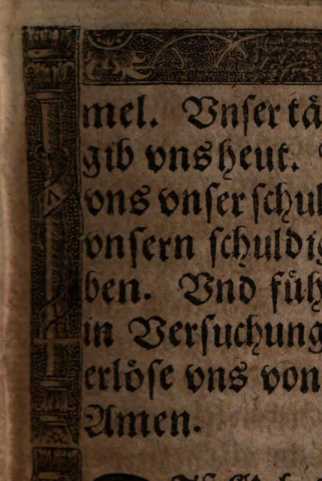 mel. Vnser tä
gib vns heut.
vns vnser schul
vnsern schuldig
ben. Vnd füh
in Versuchung
erlöse vns von
Amen.